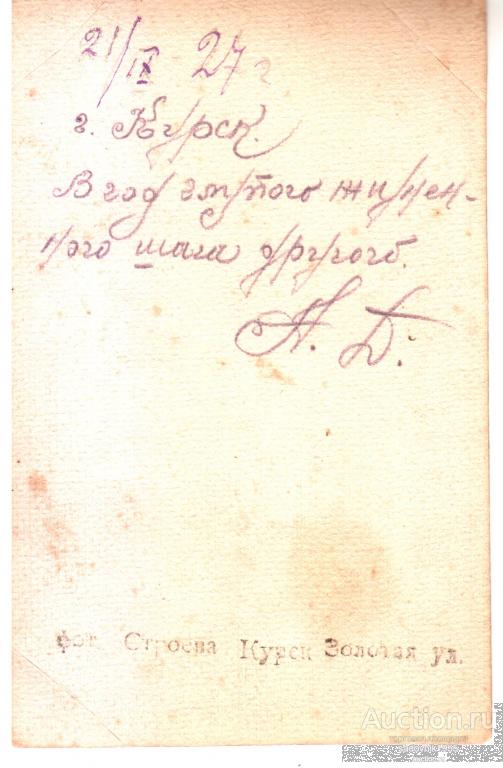 21/IX 27 г
г. Курск.
В год глупого жизнен-
ного шага другого.
А. Д.
фот Строева Курск Золотая ул.
Auction.ru